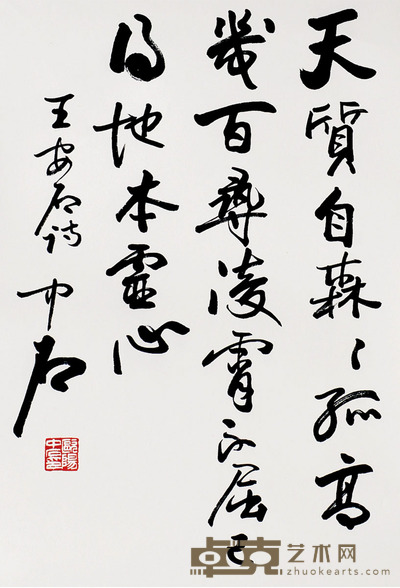 天質自森〻孤高
幾百尋凌霄不屈己
得地本靈心
王安石詩 中石
歐陽中石
卓克艺术网
zhuokearts.com